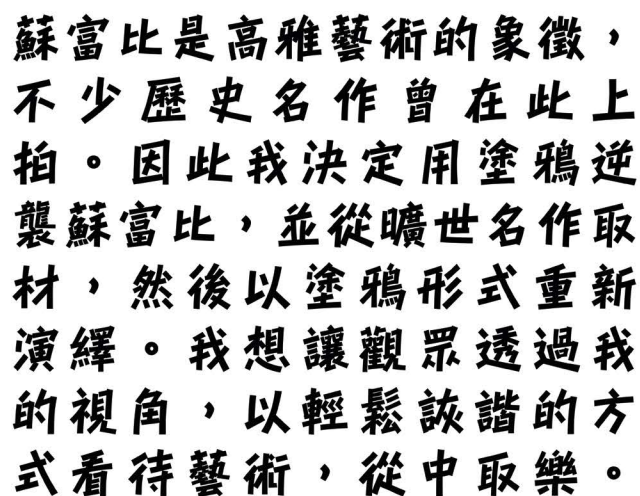 蘇富比是高雅藝術的象徵，
不少歷史名作曾在此上
拍。因此我決定用塗鴉逆
襲蘇富比，並從曠世名作取
材，然後以塗鴉形式重新
演繹。我想讓觀眾透過我
的視角，以輕鬆詼諧的方
式看待藝術，從中取樂。